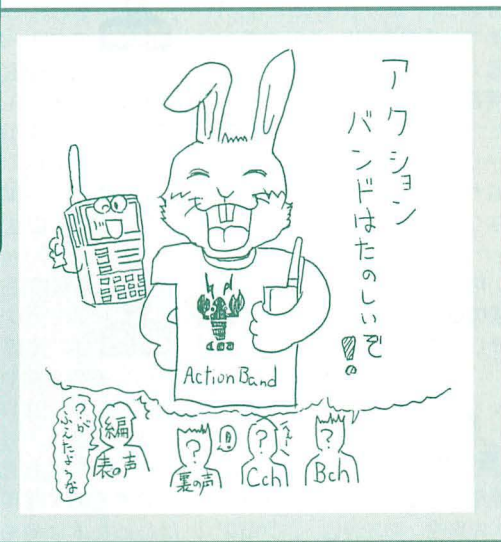 アクション
バンドはたのしいぞ!
Action Band
?が
ふえたような
編
表の声
?
裏の声
!!
?
Cch
?
Bch